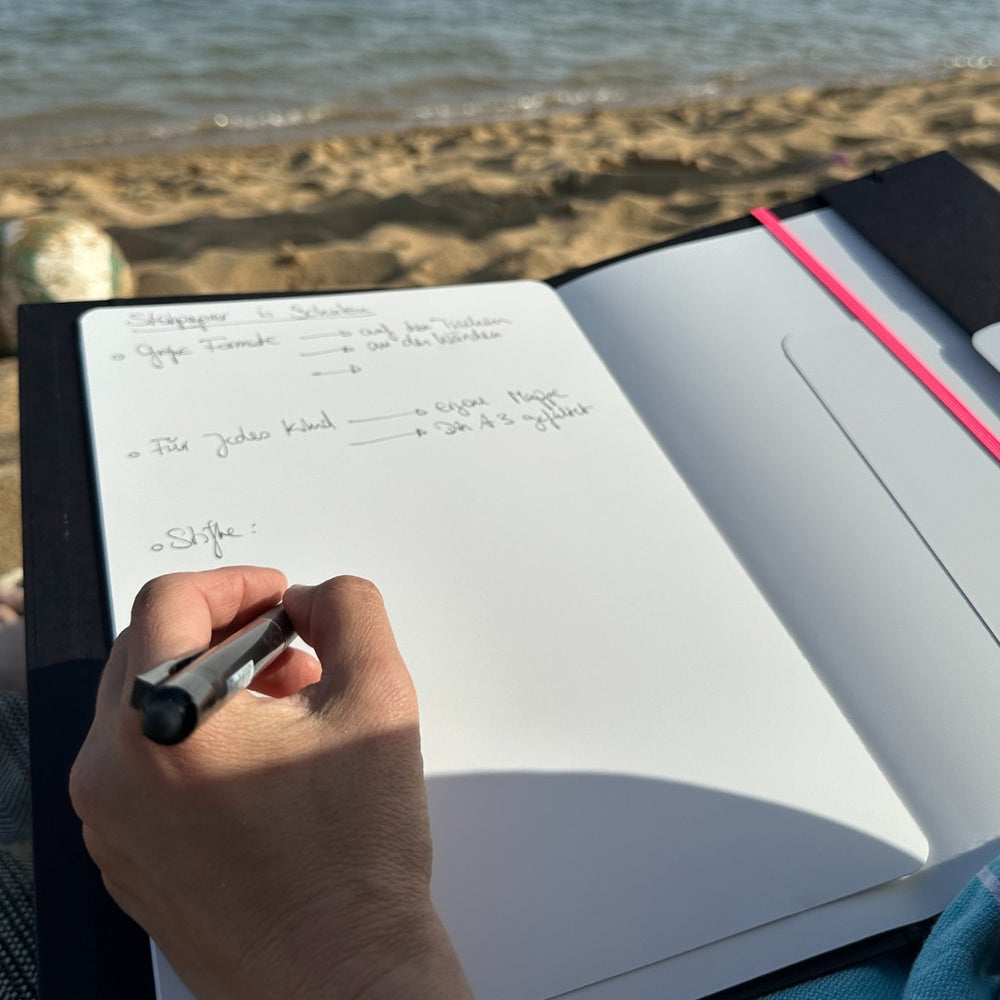 Steinpapier in Schulen
• Große Formate → auf den Tischen
→ an den Wänden
→
• Für jedes Kind → eigene Mappe
→ Din A3 gefaltet
• Stifte: